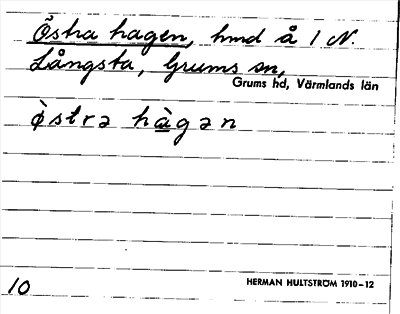 Östra hagen, hmd å 1 N.
Långsta, Grums sn,
Grums hd, Värmlands län
östrə hàgən
10
HERMAN HULTSTRÖM 1910-12